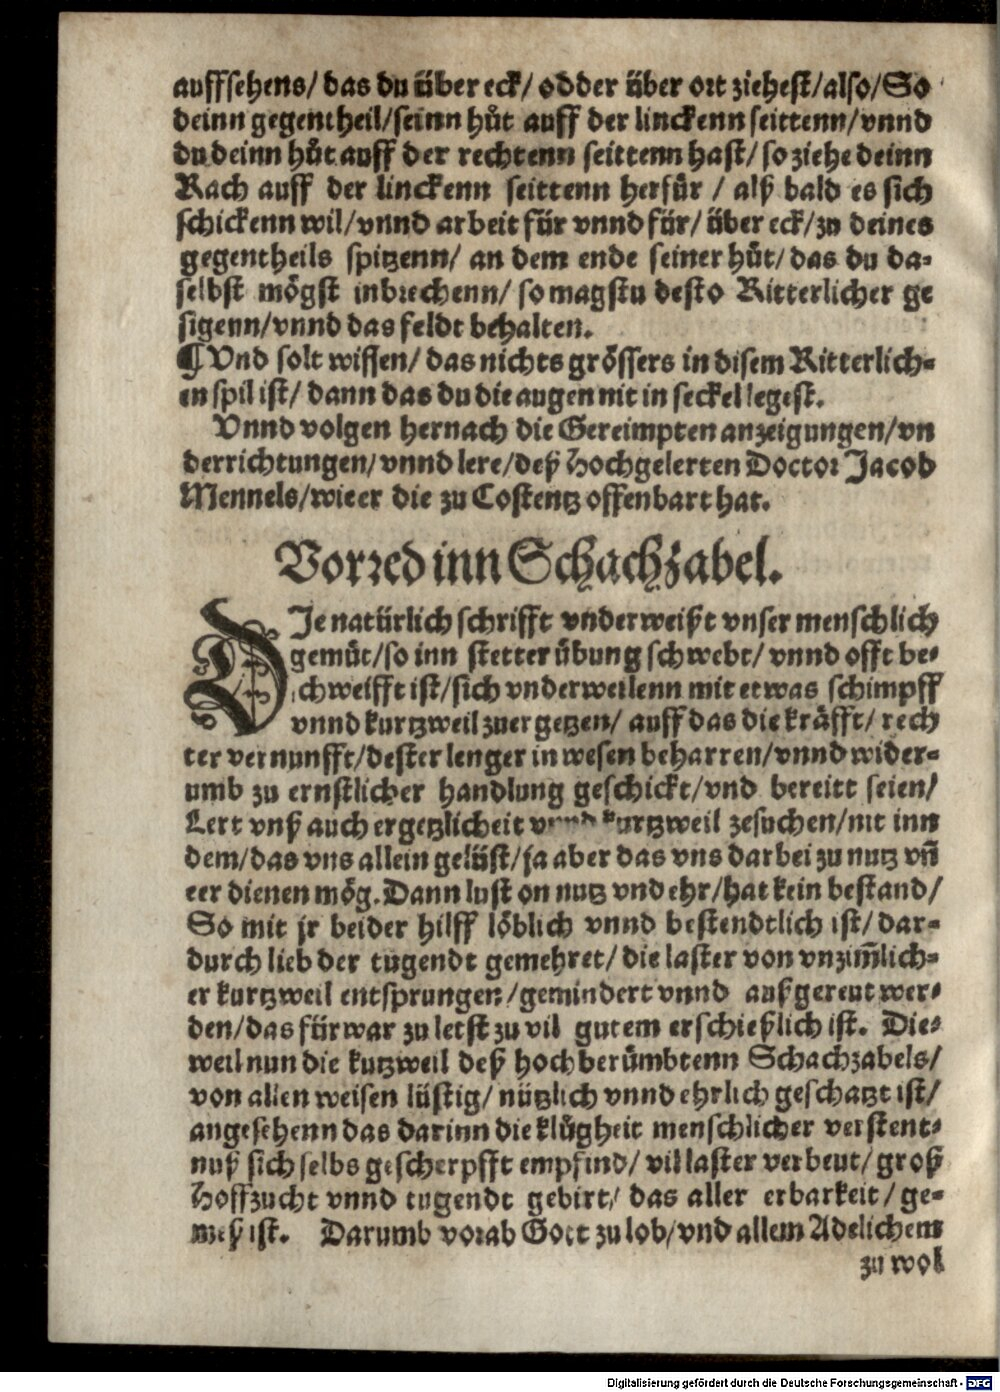 auffsehens/ das du über eck/ odder über ort ziehest/also/So
deinn gegentheil/seinn hůt auff der linckenn seittenn/vnnd
du deinn hůt auff der rechtenn seittenn hast/ so ziehe deinn
Rach auff der linckenn seittenn herfür / alß bald es sich
schickenn wil/vnnd arbeit für vnnd für/ über eck/zu deines
gegentheils spitzenn/ an dem ende seiner hůt/ das du da-
selbst mögst inbrechenn/ so magstu desto Ritterlicher ge
sigenn/vnnd das feldt behalten.
¶ Vnd solt wissen/ das nichts grössers in disem Ritterlich-
en spil ist/ dann das du die augen nit in seckel legest.
Vnnd volgen hernach die Gereimpten anzeigungen/vn
derrichtungen/vnnd lere/deß Hochgelerten Doctor Jacob
Mennels/wie er die zu Costentz offenbart hat.
Vorred inn Schachzabel.
DJe natürlich schrifft vnderweißt vnser menschlich
gemüt/so inn stetter übung schwebt/ vnnd offt be-
schweifft ist/sich vnderweilenn mit etwas schimpff
vnnd kurtzweil zuergetzen/ auff das die kräfft/ rech
ter vernunfft/dester lenger in wesen beharren/vnnd wider-
umb zu ernstlicher handlung geschickt/vnd bereitt seien/
Lert vnß auch ergetzlicheit vnnd kurtzweil zesuchen/nit inn
dem/das vns allein gelüst/ja aber das vns darbei zu nutz vn̄
eer dienen mög. Dann lust on nutz vnd ehr/hat kein bestand/
So mit jr beider hilff löblich vnnd bestendtlich ist/ dar-
durch lieb der tugendt gemehret/ die laster von vnzim̄lich-
er kurtzweil entsprungen/gemindert vnnd außgereut wer-
den/das fürwar zu letst zu vil gutem erschießlich ist. Die-
weil nun die kutzweil deß hochberümbtenn Schachzabels/
von allen weisen lüstig/ nützlich vnnd ehrlich geschatzt ist/
angesehenn das darinn die klůgheit menschlicher verstent-
nuß sich selbs gescherpfft empfind/ vil laster verbeut/ groß
Hoffzucht vnnd tugendt gebirt/ das aller erbarkeit/ ge-
meß ist. Darumb vorab Gott zu lob/vnd allem Adelichem
zu wol
Digitalisierung gefördert durch die Deutsche Forschungsgemeinschaft - DFG